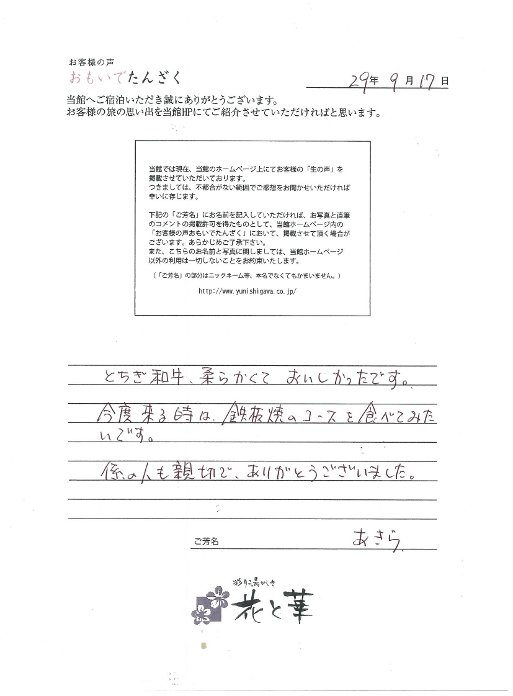 お客様の声
おもいでたんざく
29年 9月 17日
当館へご宿泊いただき誠にありがとうございます。
お客様の旅の思い出を当館HPにてご紹介させていただければと思います。
当館では現在、当館のホームページ上にてお客様の「生の声」を
掲載させていただいております。
つきましては、不都合がない範囲でご感想をお聞かせいただければ
幸いに存じます。
下記の「ご芳名」にお名前を記入していただければ、お写真と直筆
のコメントの掲載許可を得たものとして、当館ホームページ内の
「お客様の声おもいでたんざく」において、掲載させて頂く場合が
ございます。あらかじめご了承下さい。
また、こちらのお名前と写真に関しましては、当館ホームページ
以外の利用は一切しないことをお約束いたします。
(「ご芳名」の部分はニックネーム等、本名でなくてもかまいません。)
http://www.yunishigawa.co.jp/
とちぎ和牛、柔らかくて おいしかったです。
今度来る時は、鉄板焼のコースを食べてみた
いです。
係の人も親切で、ありがとうございました。
ご芳名 あきら
花と華